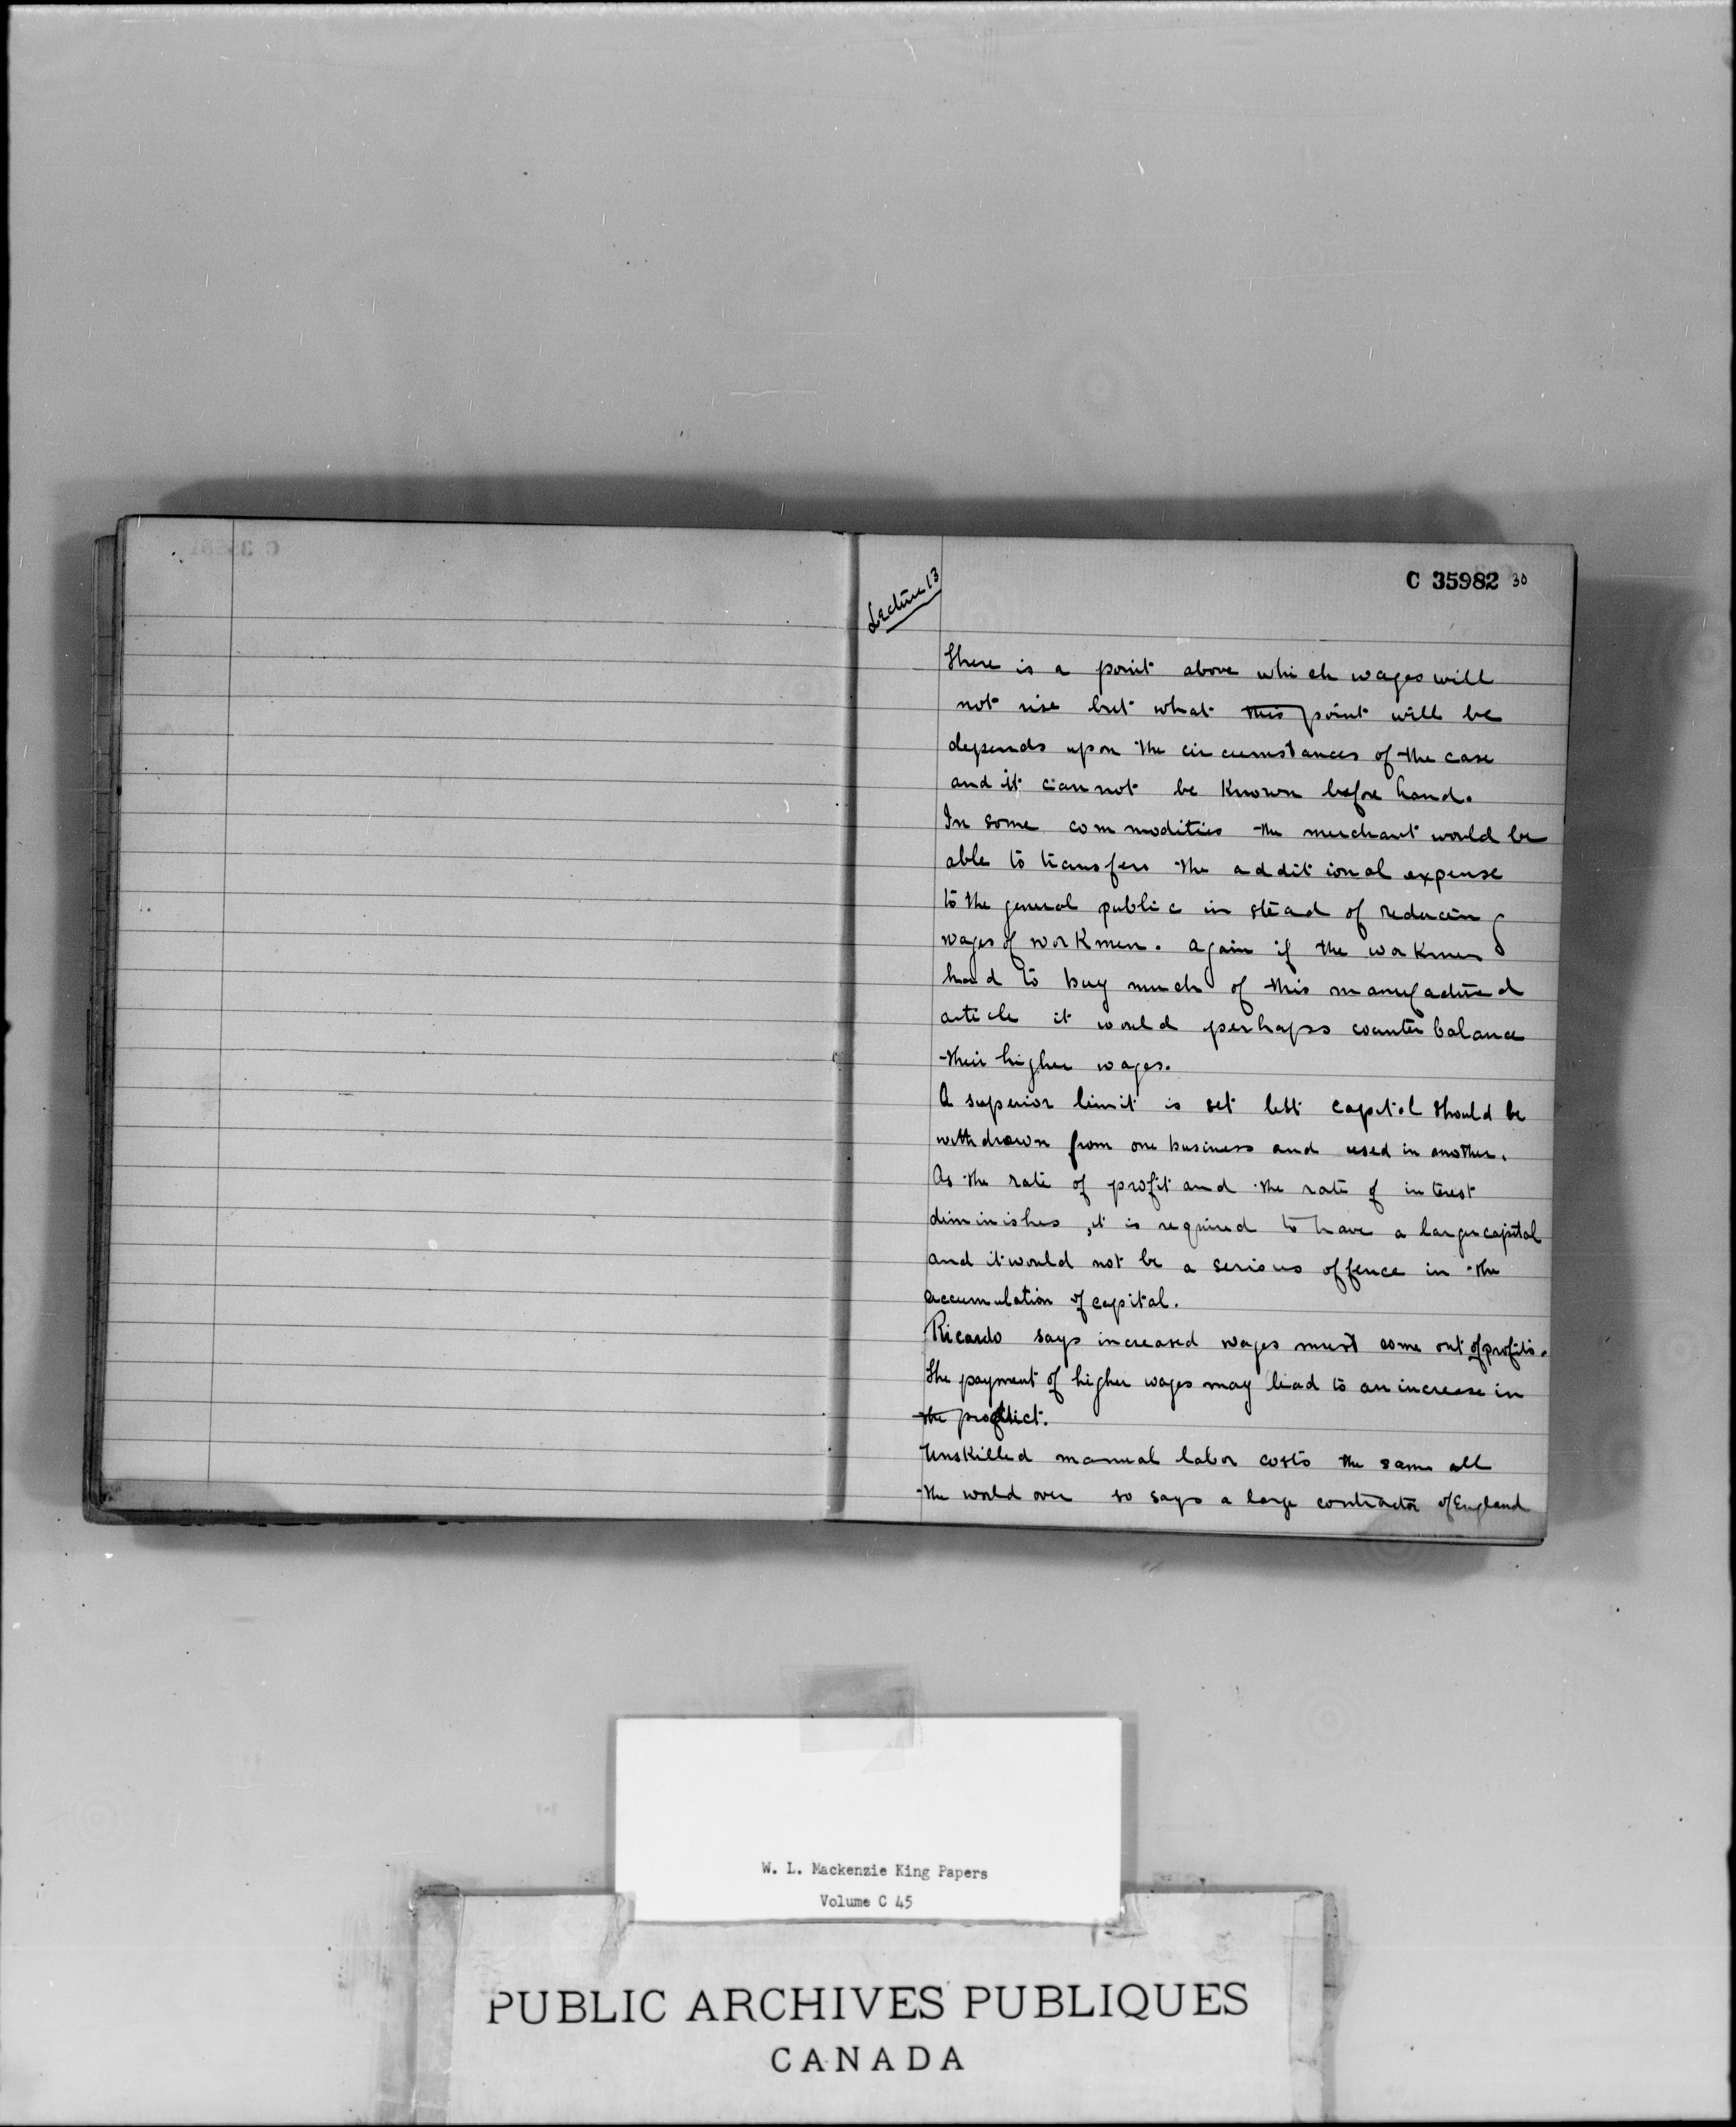 C 35982 30
Lecture 13
There is a point above which wages will
not rise but what this point will be
depends upon the circumstances of the case
and it cannot be known before hand.
In some commodities the merchant would be
able to transfer the additional expense
to the general public in stead of reducing
wages of workmen. Again if the workmen
had to buy much of this manufactured
article it would perhaps counterbalance
their higher wages.
A superior limit is set lest capital should be
withdrawn from one business and used in another.
As the rate of profit and the rate of interest
diminishes, it is required to have a larger capital
and it would not be a serious offence in the
accumulation of capital.
Ricardo says increased wages must come out of profits.
The payment of higher wages may lead to an increase in
the product.
Unskilled manual labor costs the same all
the world over so says a large contractor of England
W. L. Mackenzie King Papers
Volume C 45
PUBLIC ARCHIVES PUBLIQUES
CANADA